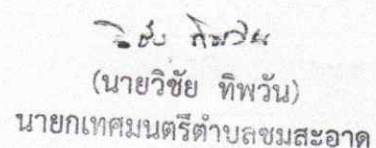 (นายวิชัย ทิพวัน)
นายกเทศมนตรีตำบลชมสะอาด